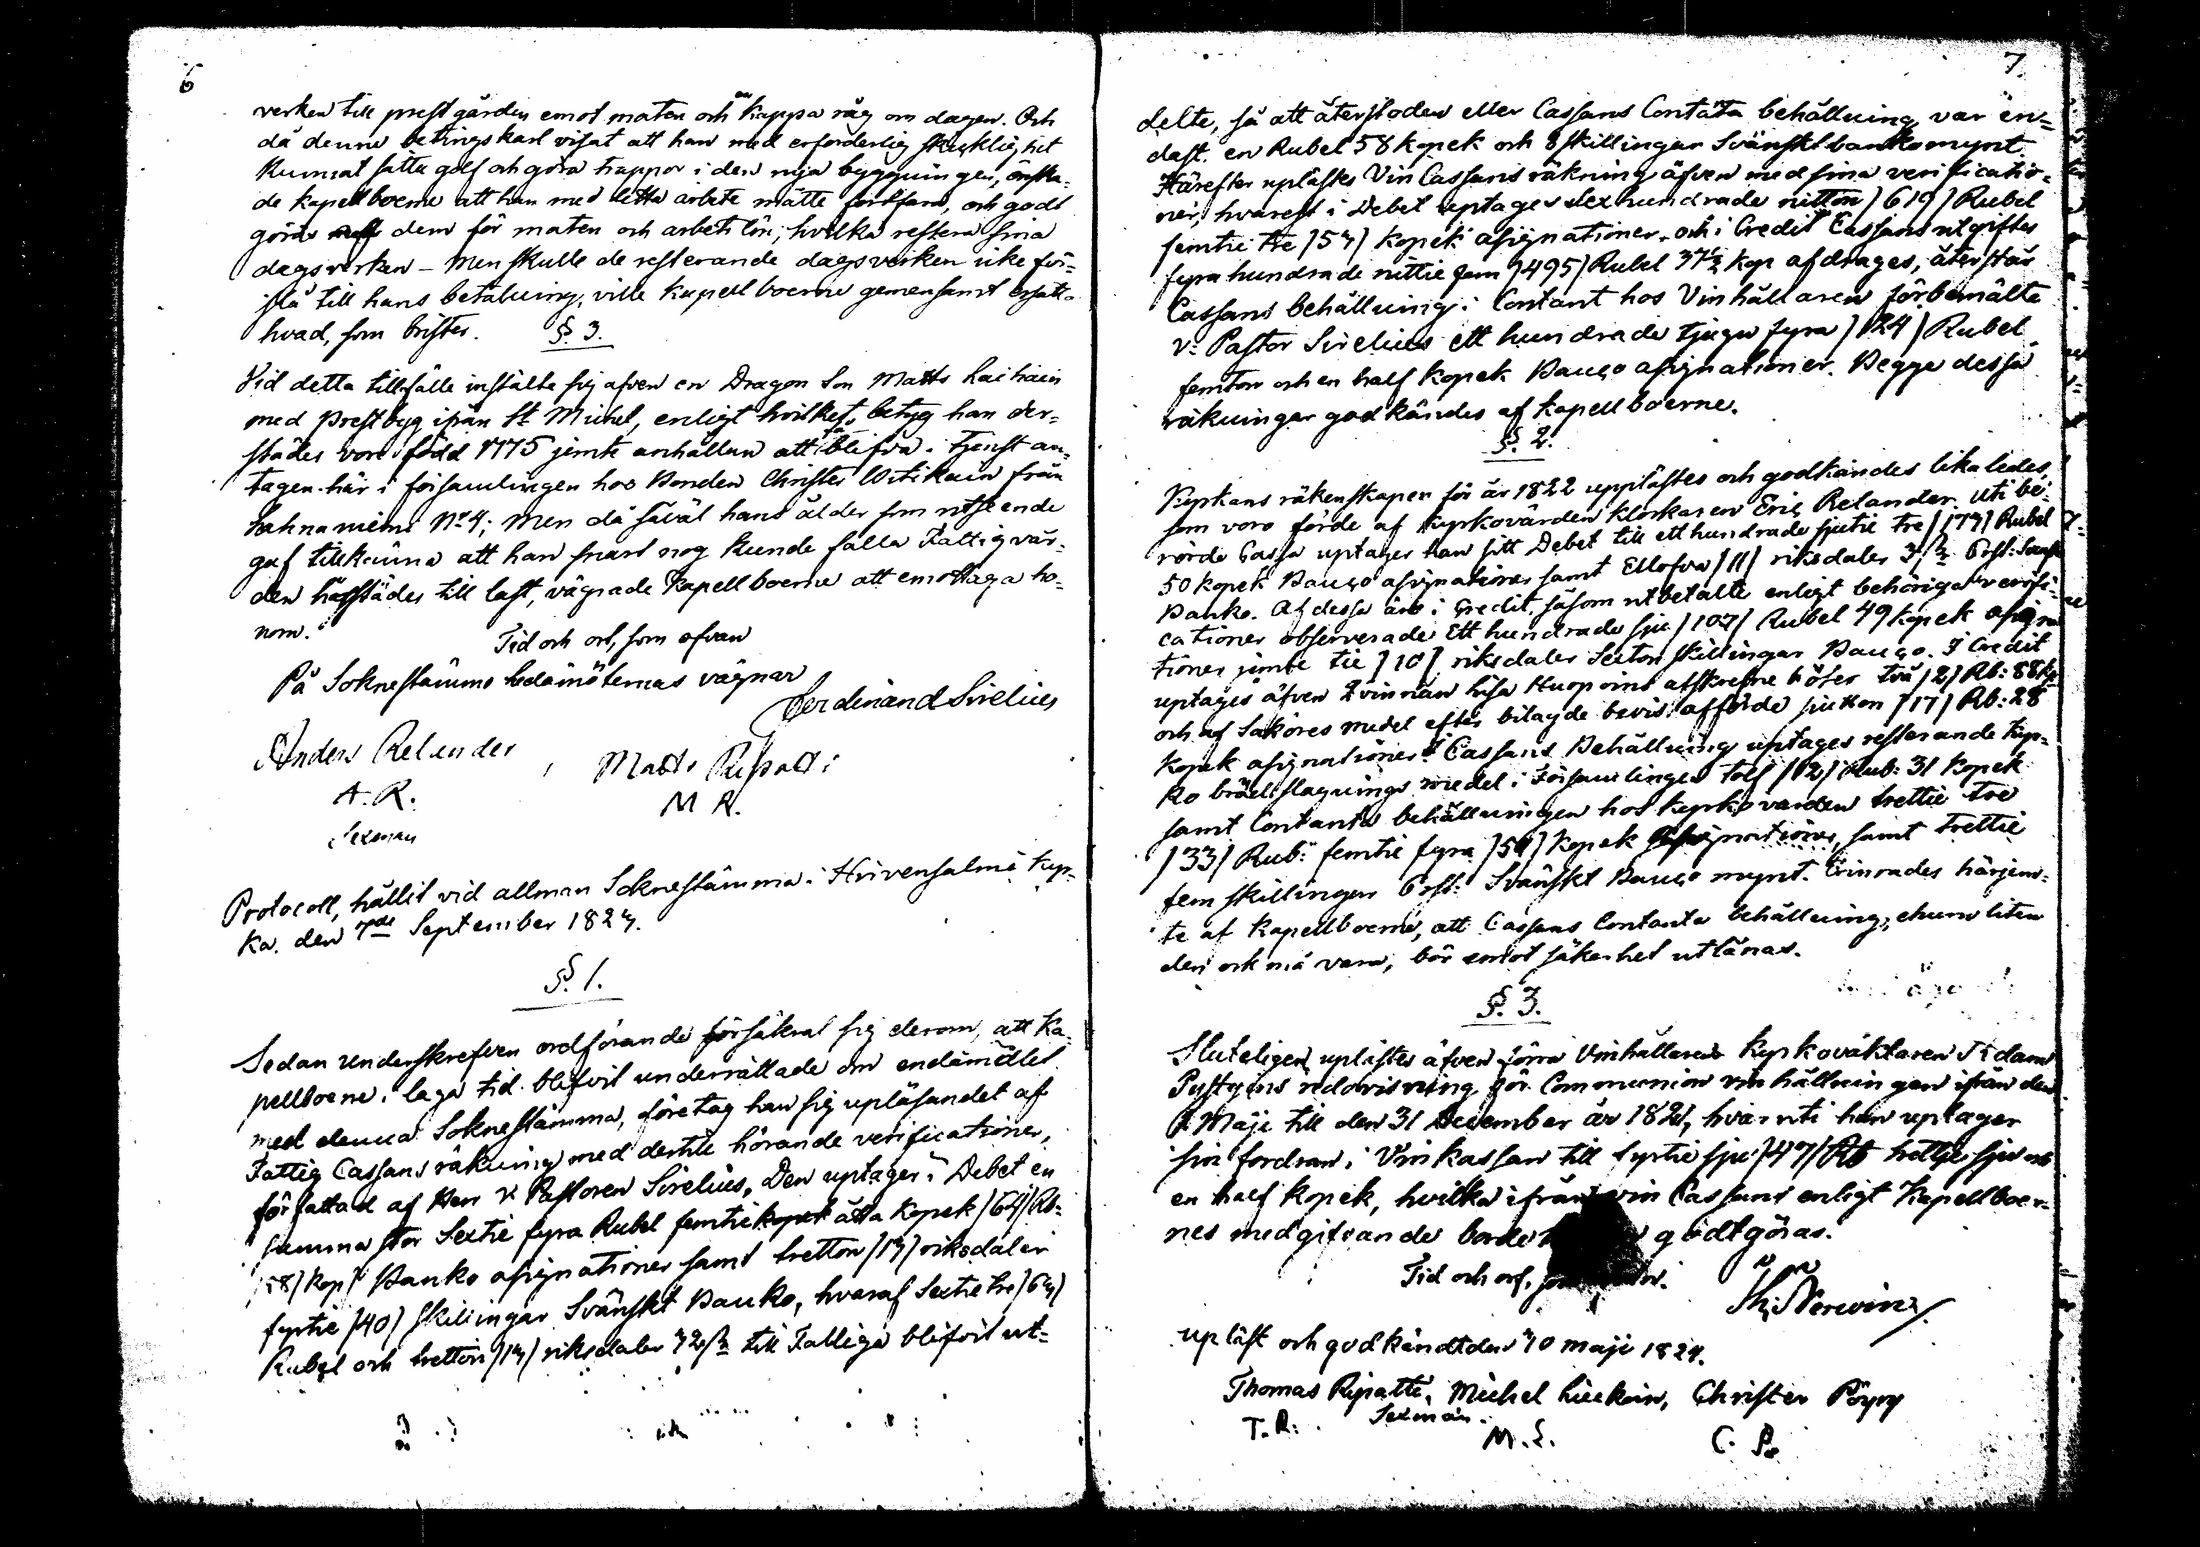 6
verken till prestgården emot maten och en Kappa råg om dagen. Och
då denne betingskarl visat att han med erforderlig skicklighet
Kunnat sätta golf och göra trappor i den nya byggningen, önska-
de kapellboerne att han med detta arbete måtte fortfara, och godt
göra dem för maten och arbetslön, hvilka restera sina
dagsverken – Men skulle de resterande dagsverken icke för-
slå till hans betalning, ville Kapellboerne gemensamt ersätta
hvad, som brister. §. 3.
Vid detta tillfälle inställte sig äfven en Dragon Son Matts
med Prestbyg ifrån St Michel, enligt hvilket betyg han der-
städes vore född 1775 jemte anhållan att få blifva i tjenst an-
tagen här i församlingen hos Bonden Christer från
No 4; Men då såväl hans ålder som utseende
gaf tillkänna att han snart nog kunde falla Fattigvår-
den härstädes till last, vägrade Kapellboerne att emottaga ho-
nom.
Tid och ort, som ofvan
På Sokneståmmo ledamöternas vägnar
Ferdinand Sirelius
Anders Relander, Matts Ripatti
A. R. M R.
Sexman
Protocoll, hållit vid allmän Sokneståmma i Hirvensalmi Kyr-
ka den 7de September 1823.
§. 1.
Sedan underskrefven ordförande försäkrat sig derom, att Ka-
pellboerne i laga tid blifvit underrättade om endamålet
med denna Sokneståmma, företag han sig upläsandet af
Fattig Cassans räkning med dertill hörande verificationer,
författad af Herr V. Pastoren Sirelius, Den uptager i Debet en
summa stor Sextie fyra Rubel femtie kopek åtta Kopek /64/ Rb:
/58/ kop/ Banko assignationer samt tretton /13/ riksdaler
fyrtie /40/ Skillingar Svänskt Banko, hvaraf Sextie tre /63/
Rubel och tretton /13/ riksdaler 32 till Fattiga blifvit ut-
7.
delte, så att återstoden eller Cassans Contata behållning var en-
dast en Rubel 58 kopek och 8 skillingar Svänskt bankomynt
Härefter uplästes Vin Cassans räkning äfven med sina verificatio-
ner, hvarest i Debet uptages Sexhundrade nitton /619/ Rubel
femtie tre /53/ kopek assignationer, och i Credit Cassans utgifter
fyra hundrade nittie fem /495/ Rubel 37½ kop afdrages, återstår
Cassans behållning i Contant hos Vinhållaren förbemälte
v. Pastor Sirelius ett hundrade tjugu fyra /124/ Rubel
femton och en half kopek Banco assignationer. Begge dessa
räkningar godkändes af kapellboerne.
§. 2.
Kyrkans räkenskaper för år 1822 upplästes och godkändes likaledes,
som voro förde af Kyrkovärden Klockaren Eric Relander. Uti be-
rörde Cassa uptager han sitt Debet till ett hundrade sjutie tre /173/ Rubel
50 kopek Banco assignationer samt Ellofva /11/ riksdaler 3
Banko. Af dessa äro i Credit, såsom utbetalte enligt behöriga verifi-
cationer observerade Ett hundrade sju /107/ Rubel 49 kopek assigna
tioner jemte tie /10/ riksdaler Sexton skillingar Banco. I Credit
uptages äfven Qvinnan afskrefne böter två /2/ Rb: 88 k
och af Saköres medel efter bilagde bevis afförde sjutton /17/ Rb: 28
kopek assignationer. I Cassans Behållning uptages resterande Kyr-
ko medel i Församlingen tolf /12/ Rub: 31 kopek
samt Contanta behållningen hos kyrkovärden trettie tre
/33/ Rub: femtie fyra /54/ kopek assignationer, samt trettie
fem skillingar Svänskt Banco mynt. Erinrades härjem-
te af Kapellboerne, att Cassans Contanta behållning, ehuru liten
den ock må vara, bör emot säkerhet utlånas.
§. 3.
Sluteligen uplästes äfven förra Vinhållarens Kyrkoväktaren
redovisning för Communion vinhållningen ifrån den
1 Maji till den 31 December år 1821, hvaruti han uptager
sin fordran i Vinkassan till fyrtie sju /47/ Rb trettie sju och
en half Kopek, hvilka ifrån vin Cassans enligt Kapellboer-
nes medgifvande borde godtgöras.
Tid och ort,
upläst och godkändt den 30 maji 1824.
Thomas Ripatti, Michel Liukoin, Christer Pöyry
T. R: Sexman. M. L. C. P.